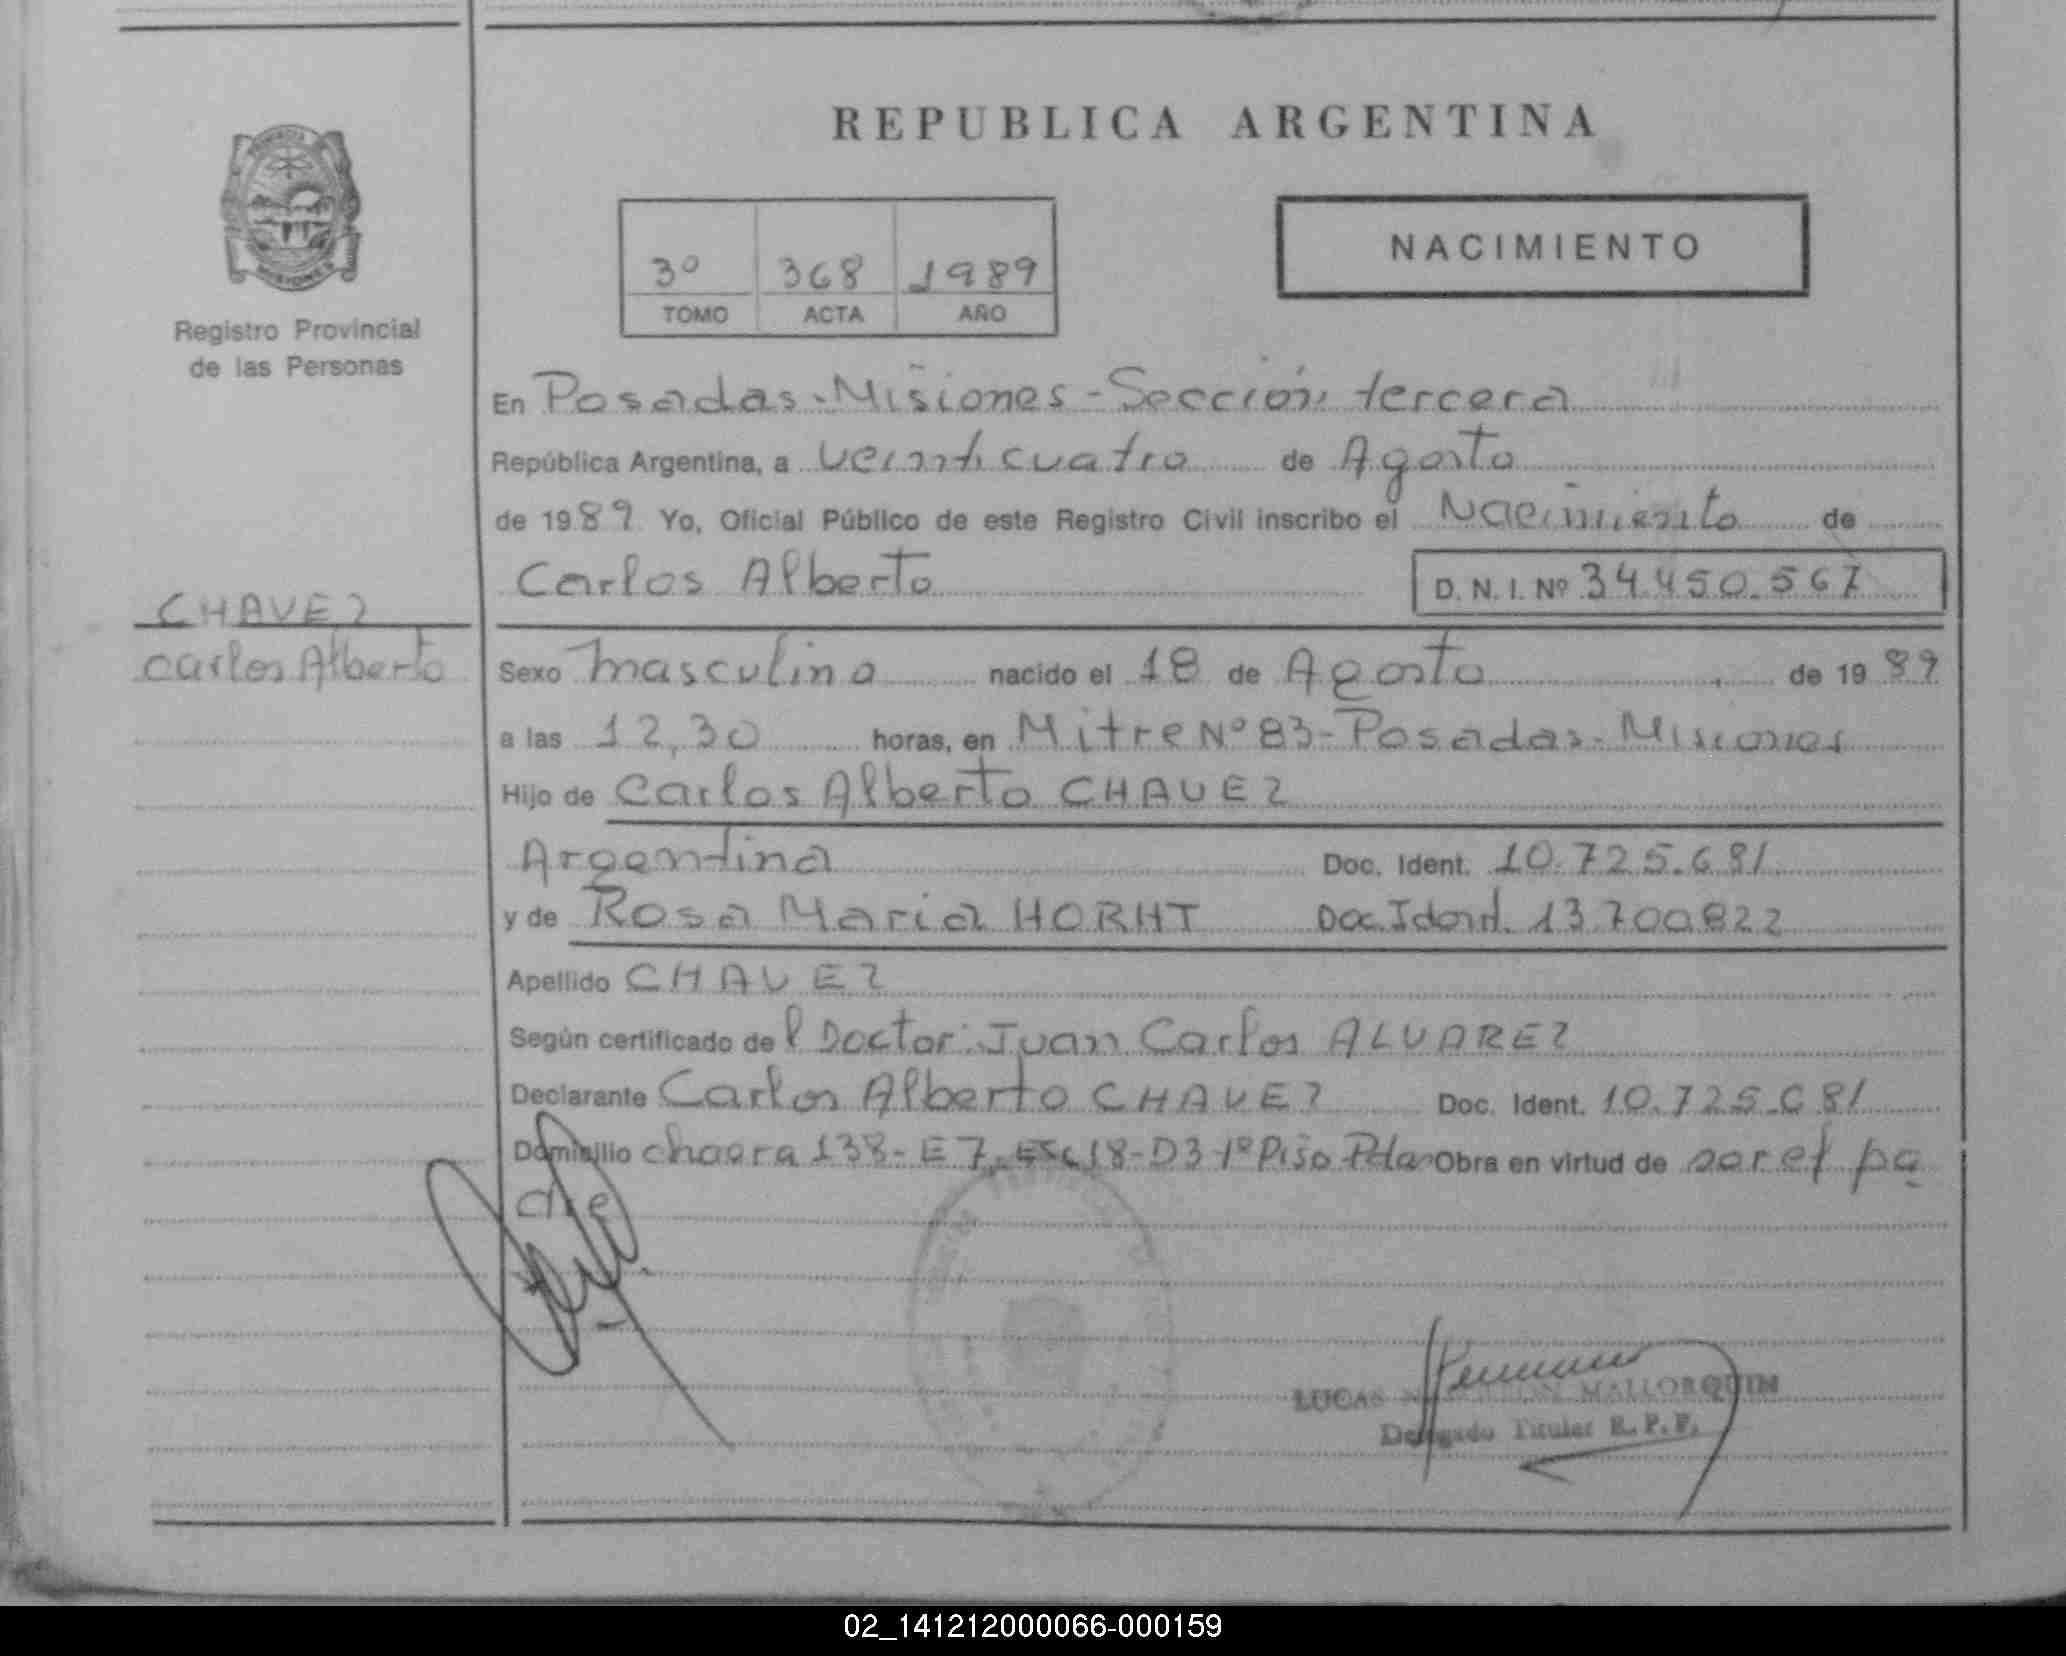 REPUBLICA ARGENTINA
NACIMIENTO
3º 368 1989
TOMO ACTA AÑO
Registro Provincial
de las Personas
En Posadas - Misiones - Sección tercera
República Argentina, a veinticuatro de Agosto
de 1989 Yo, Oficial Público de este Registro Civil inscribo el Nacimiento de
Carlos Alberto
D. N. I. Nº 34.450.567
CHAVEZ
Carlos Alberto
Sexo masculino nacido el 18 de Agosto de 1989
a las 12,30 horas, en Mitre Nº 83 - Posadas - Misiones
Hijo de Carlos Alberto CHAVEZ
Argentina Doc. Ident. 10.725.681
y de Rosa Maria HORHT Doc. Ident. 13.700.822
Apellido CHAVEZ
Según certificado del Doctor: Juan Carlos ALVAREZ
Declarante Carlos Alberto CHAVEZ Doc. Ident. 10.725.681
Domicilio chacra 138 - E 7, Esc 18 - D3 - 1º Piso Pdas Obra en virtud de ser el pa
dre
LUCAS MALLORQUIN
Delegado Titular R. P. P.
02_141212000066-000159